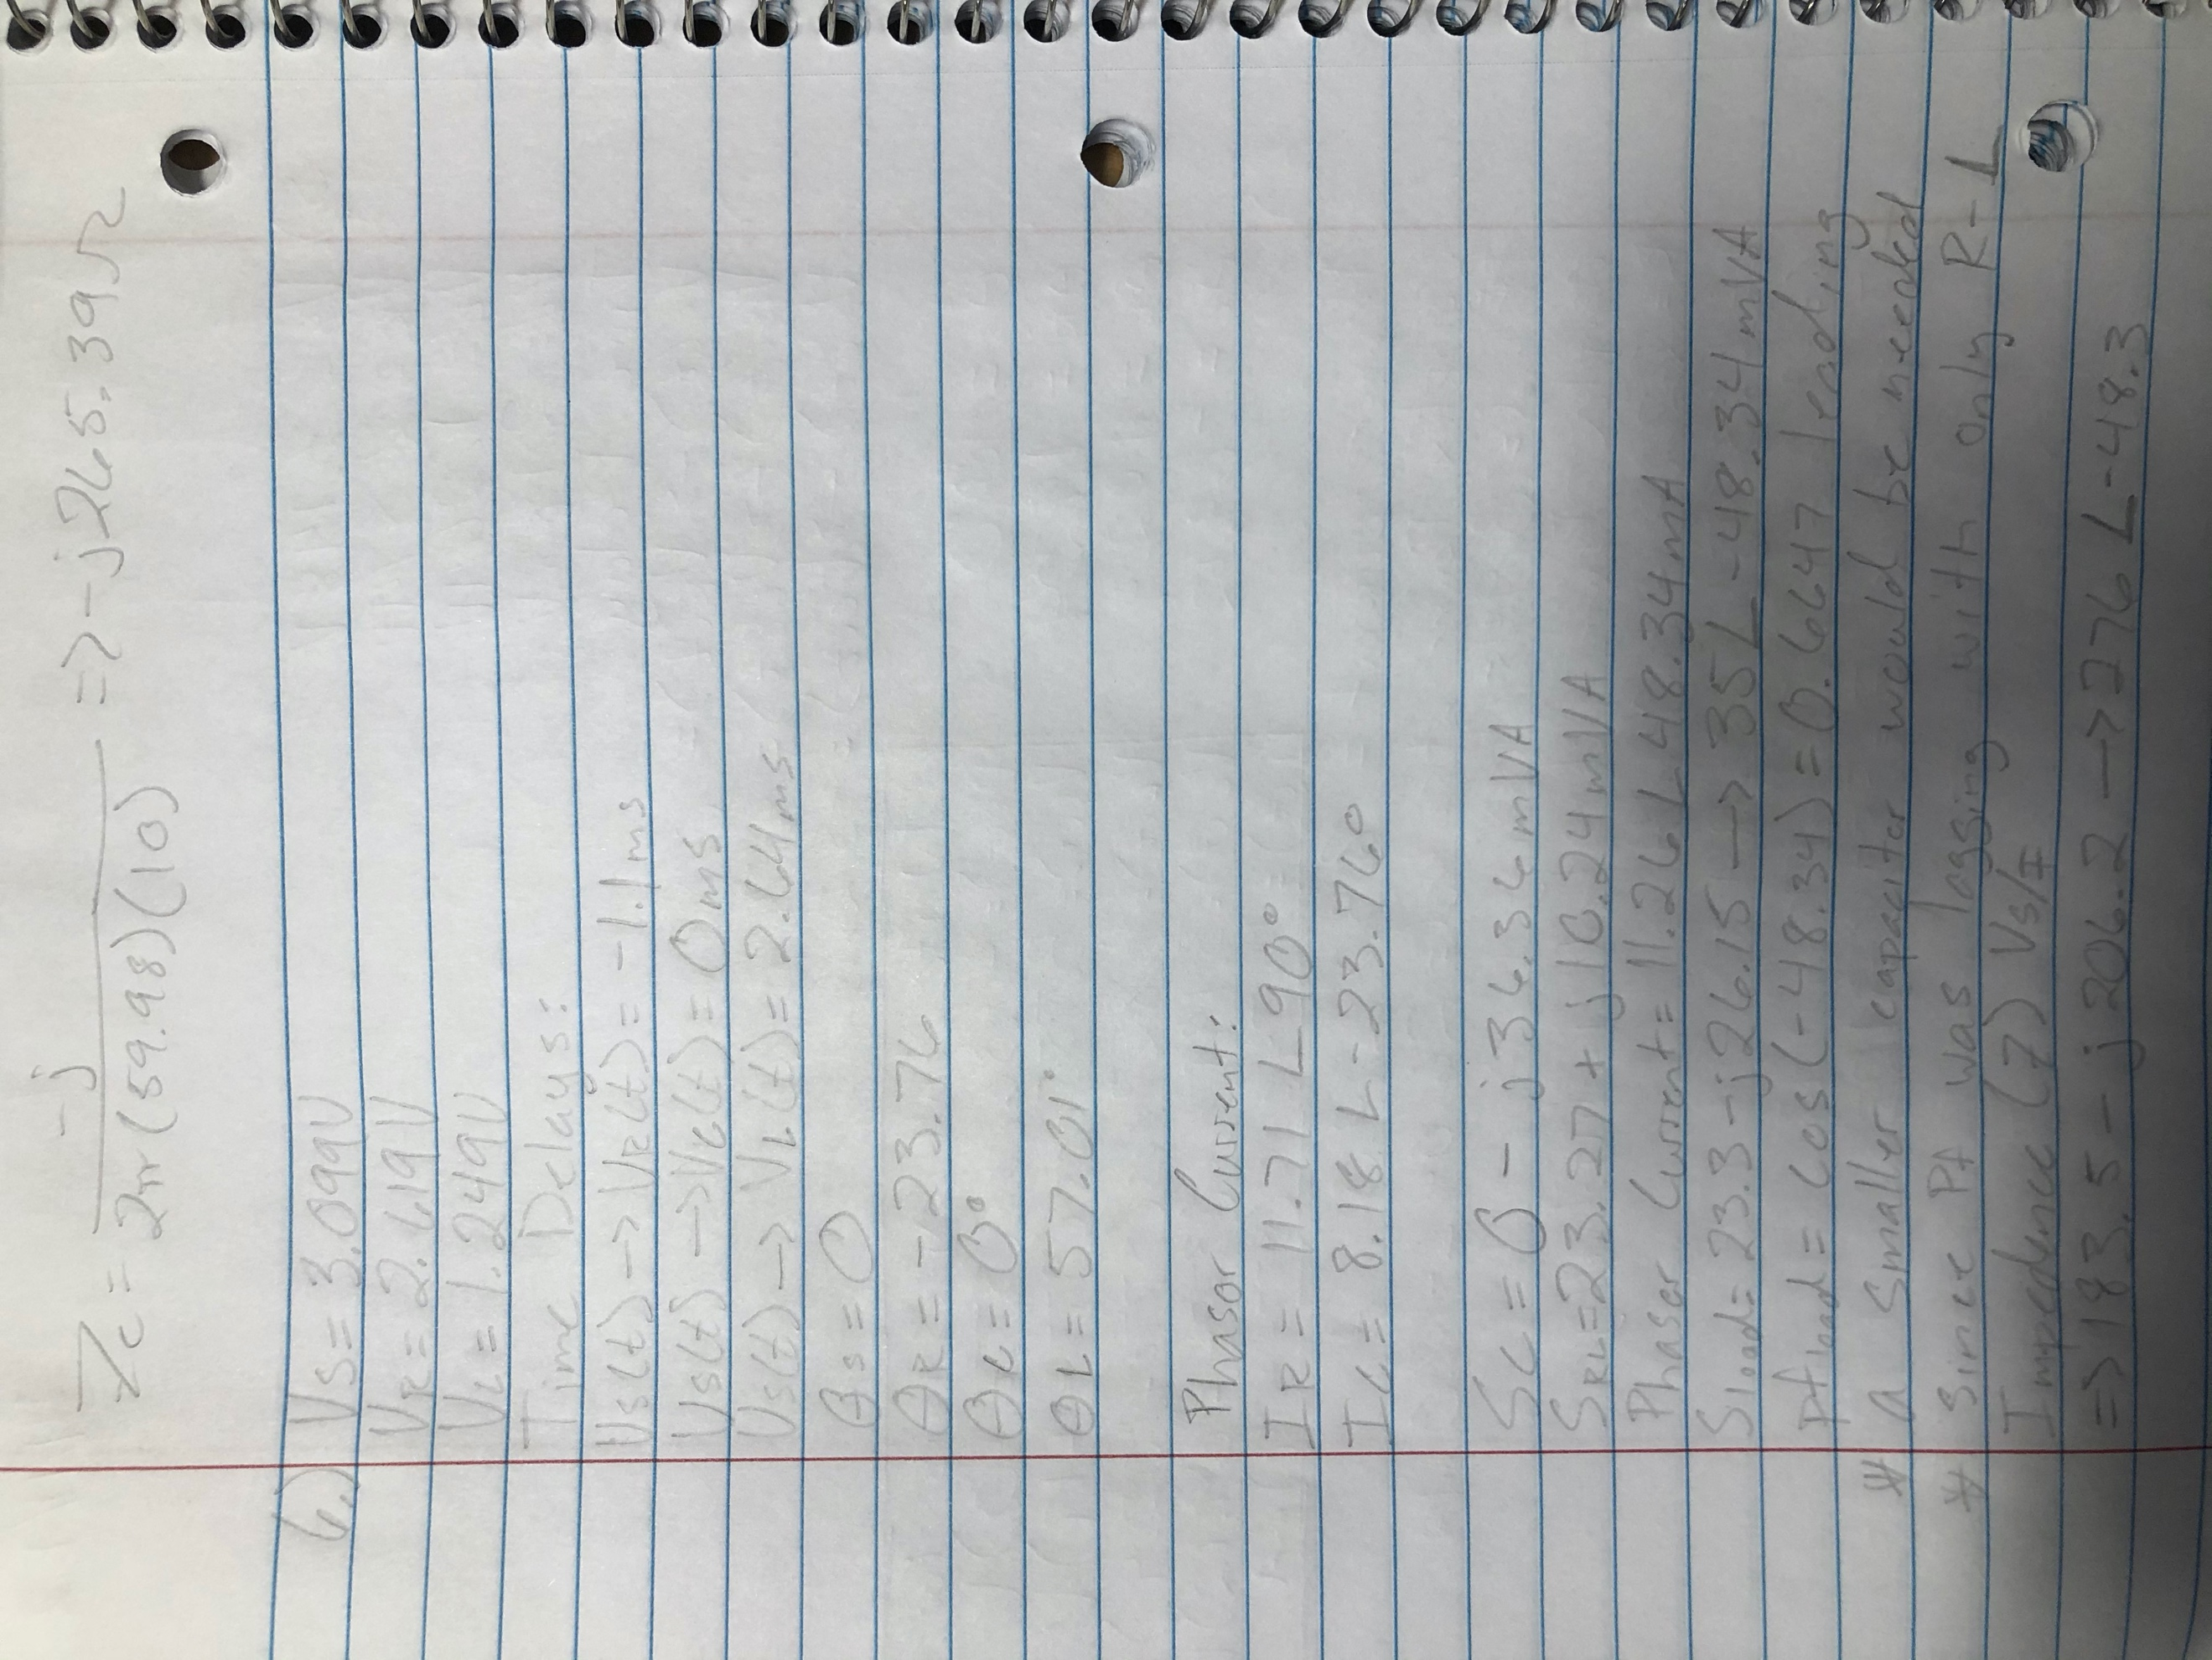 Zc = -j / 2π(59.98)(10) => -j265.39Ω
6.) Vs = 3.099V
VR = 2.619V
VL = 1.249V
Time Delays:
Vs(t) -> VR(t) = -1.1ms
Vs(t) -> Vc(t) = 0ms
Vs(t) -> VL(t) = 2.64ms
θs = 0
θR = -23.76
θc = 0°
θL = 57.01°
Phasor Current:
IR = 11.71 ∠90°
IL = 8.18 ∠-23.76°
Sc = 0 - j36.36mVA
SRL = 23.27 + j10.24mVA
Phasor Current = 11.26 ∠48.34mA
Sload = 23.3 - j26.15 -> 35∠-48.34mVA
Pfload = cos(-48.34) = 0.6647 leading
* A smaller capacitor would be needed
* Since Pf was lagging with only R-L
Impedence (Z) Vs/I
=> 183.5 - j206.2 -> 276 ∠-48.3